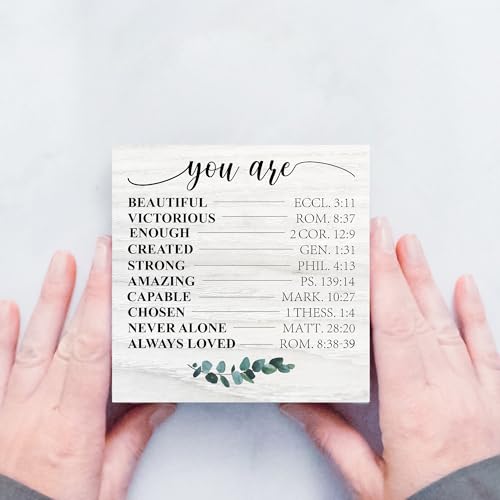 you are
BEAUTIFUL ECCL. 3:11
VICTORIOUS ROM. 8:37
ENOUGH 2 COR. 12:9
CREATED GEN. 1:31
STRONG PHIL. 4:13
AMAZING PS. 139:14
CAPABLE MARK. 10:27
CHOSEN 1 THESS. 1:4
NEVER ALONE MATT. 28:20
ALWAYS LOVED ROM. 8:38-39